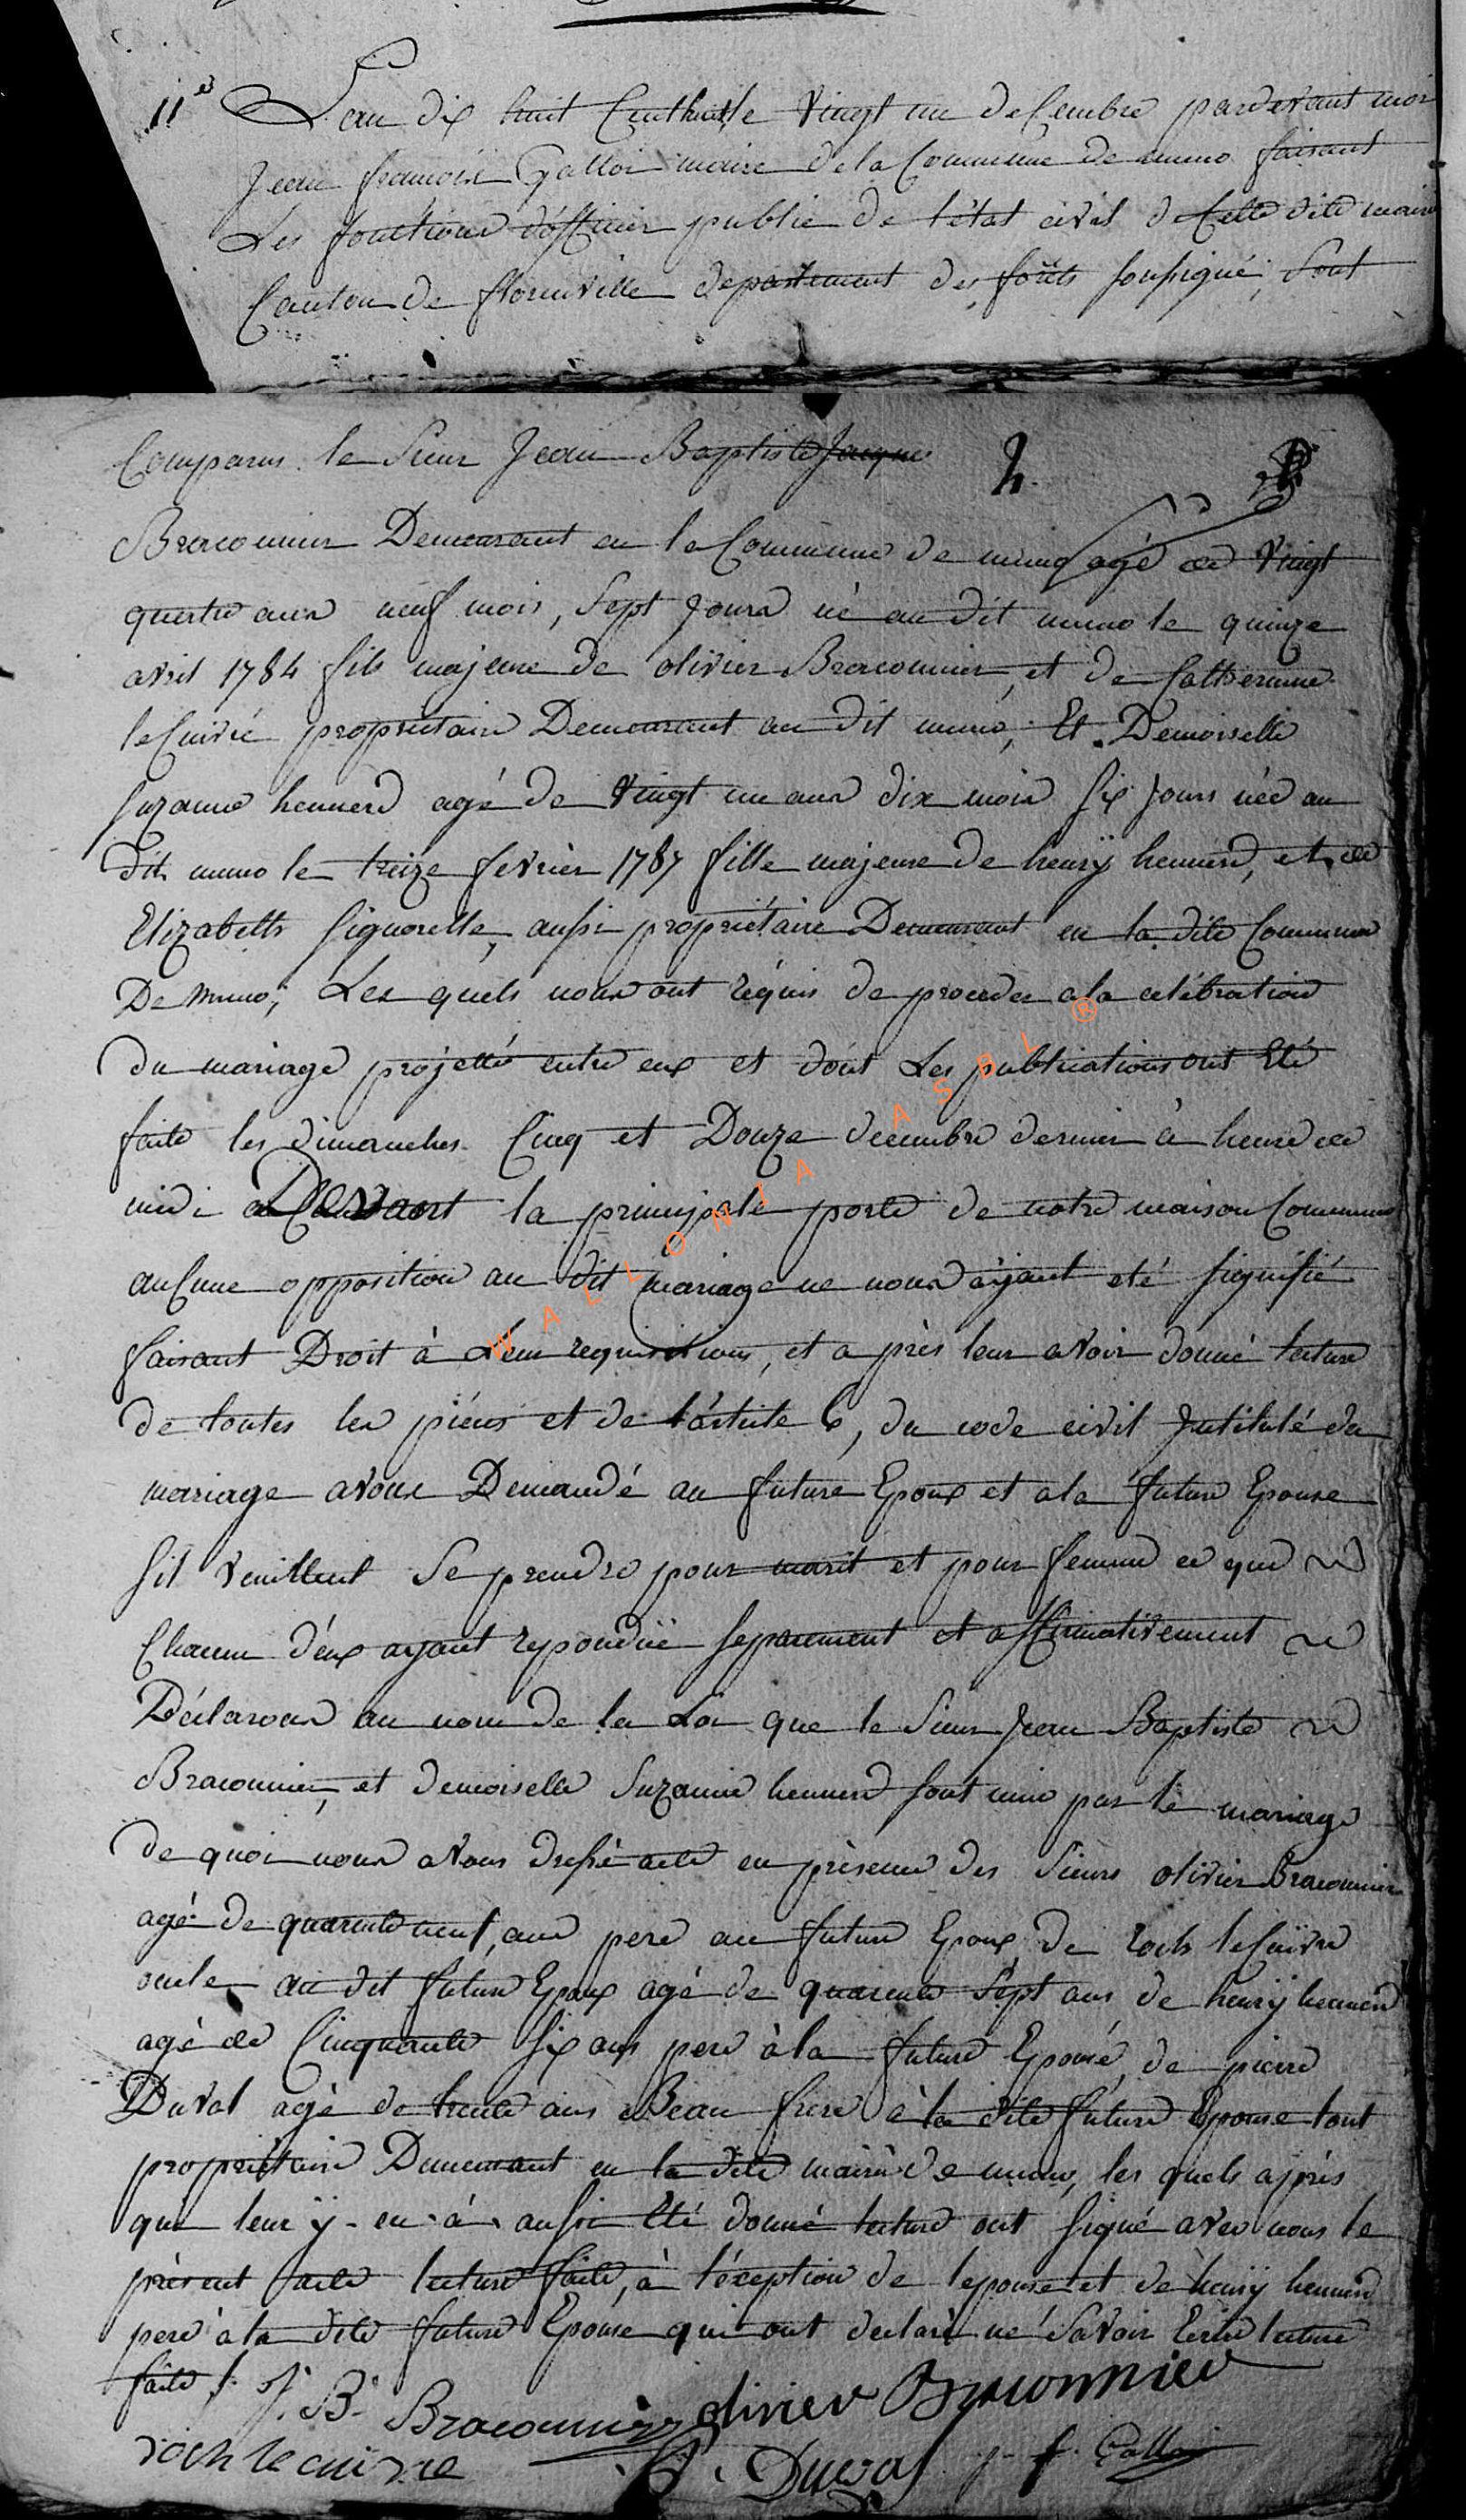 11e L'an dix huit Cent huit le vingt un decembre pardevant moi
Jean françois Galloi maire dela Commune de muno faisant
Les fonctions d'officier public de l'état civil de Celle dite mairie
Canton de florenville departement des forêts soussigné, sont
Comparus le sieur Jean Baptiste Jacques
2.
Braconnier Demeurant en la Commune de muno agé de vingt
quatre ans neuf mois, sept Jours né au dit muno le quinze
avril 1784 fils majeure de olivier Braconnier, et de Catherinne
leCuivré propriétaire Demeurant au dit muno, Et Demoiselle
suzanne hennerd agé de vingt un ans dix mois six Jours née au
dit muno le treize fevrier 1787 fille majeure de henrÿ hennerd, et de
Elizabeth signorelle, aussi propriétaire Demeurant en la dite Commune
De Muno; Les quels nous ont réquis de proceder ala celébration
du mariage projetté entre eux et dont Les publications ont Eté
faite les dimanches Cinq et Douze decembre dernier à heure de
midi Devant la principale porte de notre maison Commune
auCune opposition au dit mariage ne nous aÿant eté signifié
faisant Droit à Leur requisitions, et a près leur avoir donné lecture
de toutes les piéces et de l'article 6, du code civil Jntitulé du
mariage avons Demandé au future Epoux et ala future Epouse
s'il veuillent se prendre pour marit et pour femme ce que
Chacun d'eux ayant repondüe séparement et affirmativement
Déclarons au nom de la Loi que le sieur Jean Baptiste
Braconnier, et demoiselle Suzanne hennerd sont unie par le mariage
de quoi nous avons dressé acte en présence des sieurs olivier Braconnier
agé de quarente neuf, ans pere au future Epoux, de roch leCuivre
oncle au dit future Epoux agé de quarente sépt ans de henrÿ hennerd
agé de Cinquante six ans pere à la future Epouse, de pierre
Duval agé de trente ans Beau frere à la dite future Epouse tout
propriétaire Demeurant en la dite mairie de muno, les quels après
que leur ÿ en à aussi Eté donné lecture ont signé avec nous le
présent acte lecture faite, à l'éxception de lepouse et de henrÿ hennerd
pere à la dite future Epouse qui ont declaré ne savoir Ecrire lecture
faite
J. B. Braconnier olivier Braconnier
roch lecuivre P. Duval j. f. Galloi
WALLONIA ASBL ®